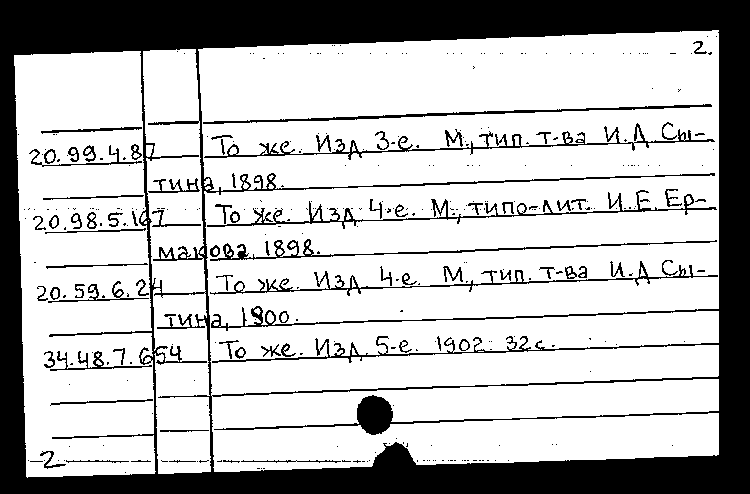 2.
20.99.4.87 То же. Изд 3-е. М., тип. т-ва И.Д Сы-
тина, 1898.
20.98.5.167 То же. Изд 4-е. М., типо-лит. И.Е. Ер-
макова, 1898.
20.59.6.24 То же. Изд 4-е. М., тип. т-ва И.Д Сы-
тина, 1900.
34.48.7.654 То же. Изд 5-е. 1902. 32с.
2